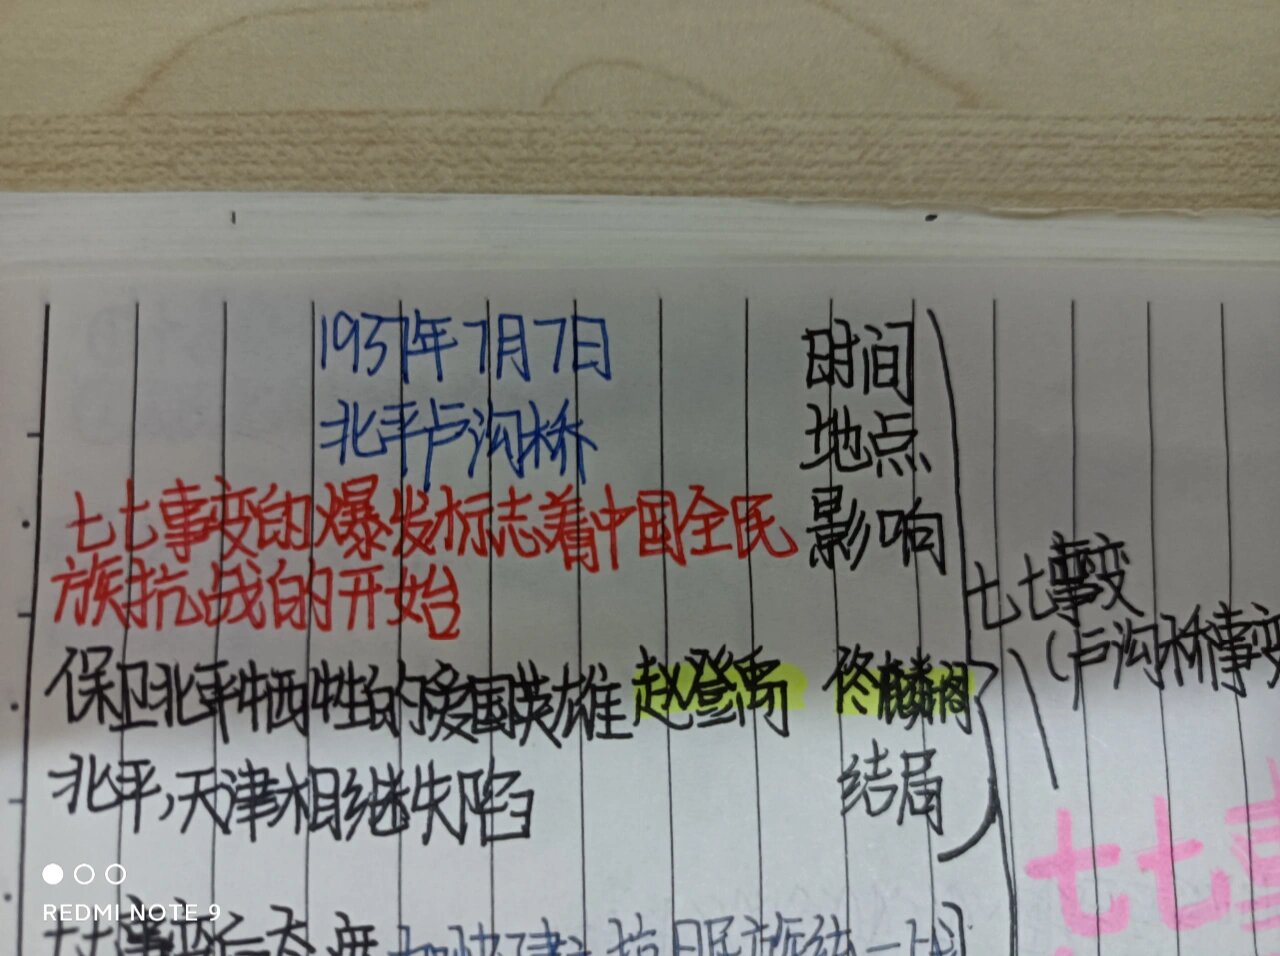 1937年7月7日 时间
北平卢沟桥 地点
七七事变的爆发标志着中国全民 影响
族抗战的开始
七七事变
(卢沟桥事变
保卫北平牺牲的爱国英雄赵登禹 佟麟阁
北平,天津相继失陷 结局
七七事
REDMI NOTE 9
七七事变后态度